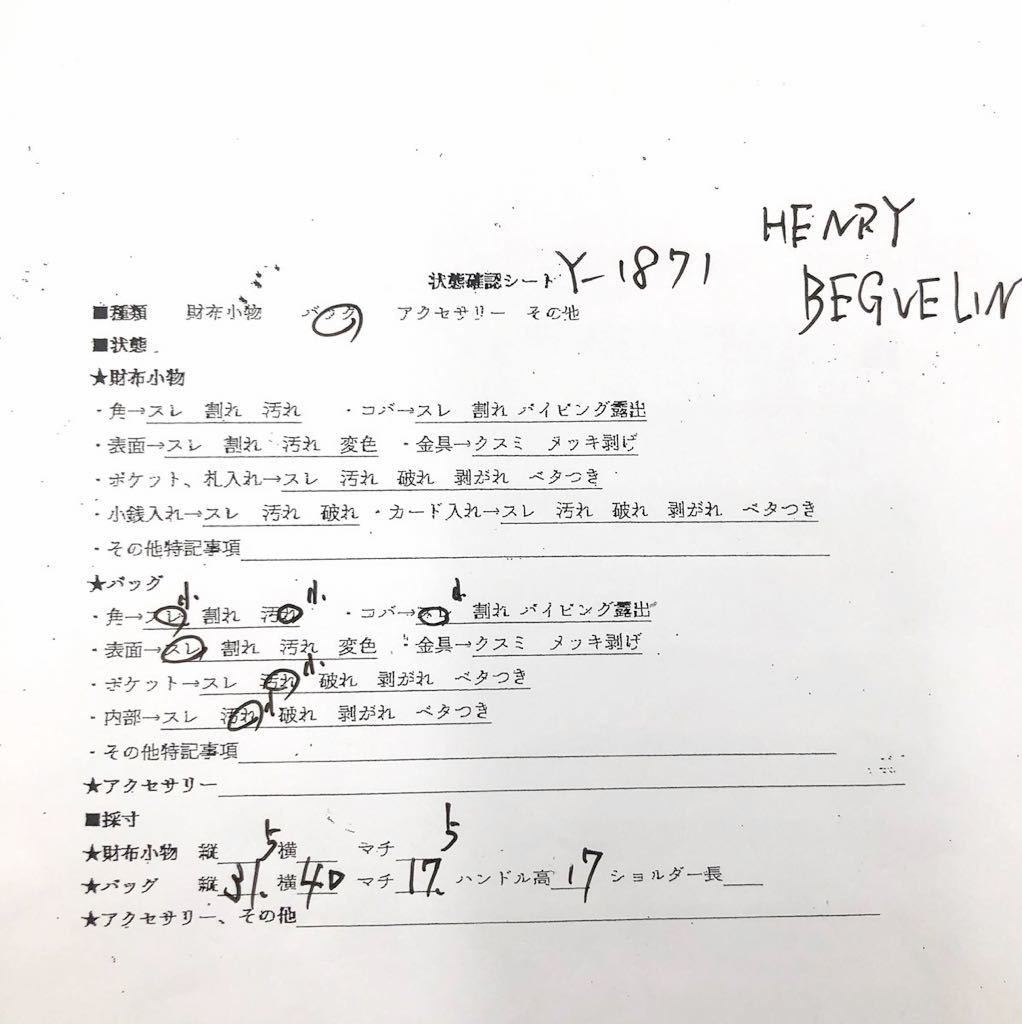 HENRY
BEGUELIN
状態確認シート Y-1871
■種類 財布小物 バッグ アクセサリー その他
■状態
★財布小物
・角→スレ 割れ 汚れ ・コバ→スレ 割れ パイピング露出
・表面→スレ 割れ 汚れ 変色 ・金具→クスミ メッキ剥げ
・ポケット、札入れ→スレ 汚れ 破れ 剥がれ ベタつき
・小銭入れ→スレ 汚れ 破れ ・カード入れ→スレ 汚れ 破れ 剥がれ ベタつき
・その他特記事項
★バッグ
・角→スレ 割れ 汚れ ・コバ→スレ 割れ パイピング露出
・表面→スレ 割れ 汚れ 変色 ・金具→クスミ メッキ剥げ
・ポケット→スレ 汚れ 破れ 剥がれ ベタつき
・内部→スレ 汚れ 破れ 剥がれ ベタつき
・その他特記事項
★アクセサリー
■採寸
★財布小物 縦 横 マチ
★バッグ 縦31.5 横40 マチ17.5 ハンドル高17 ショルダー長
★アクセサリー、その他